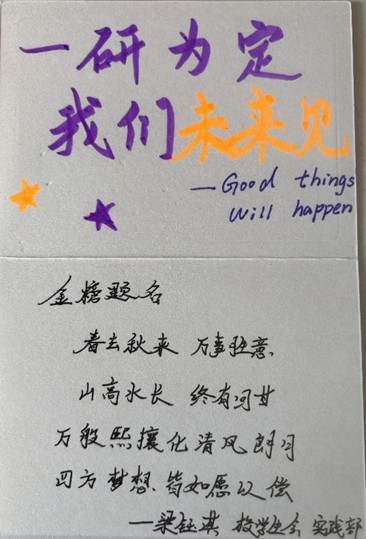 一研为定
我们未来见
—Good things
will happen
金榜题名
春去秋来 万事胜意
山高水长 终有回甘
万般熙攘化清风朗月
四方梦想皆如愿以偿
—梁钰淇 校学生会 实践部